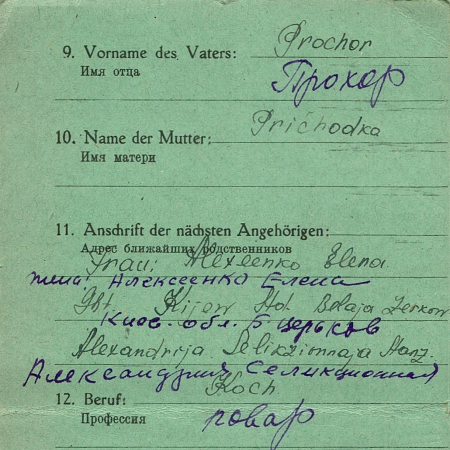 9. Vorname des Vaters: Prochor
Имя отца Прохор
10. Name der Mutter: Prichodka
Имя матери
11. Anschrift der nächsten Angehörigen:
Адрес ближайших родственников
Frau: Alexeenko Elena
жена: Алексеенко Елена
Gbt. Kijew Belaja Zerkow
Киев. обл. Б. церьков
Alexandrija Selikzionnaja Stanz.
Александрия Селикционная
12. Beruf: Koch
Профессия повар